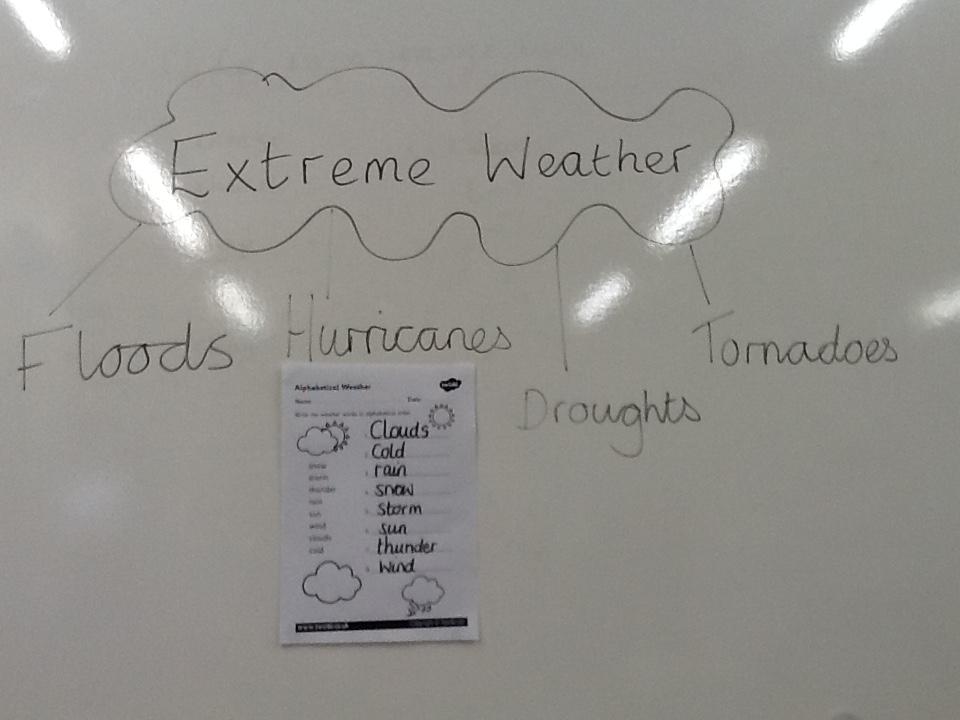 Extreme Weather
Floods
Hurricanes
Droughts
Tornadoes
Alphabetical Weather
twinkl
Name
Date
Write the weather words in alphabetical order
Clouds
Cold
rain
snow
storm
sun
thunder
wind
snow
storm
thunder
rain
sun
wind
clouds
cold
www.twinkl.co.uk